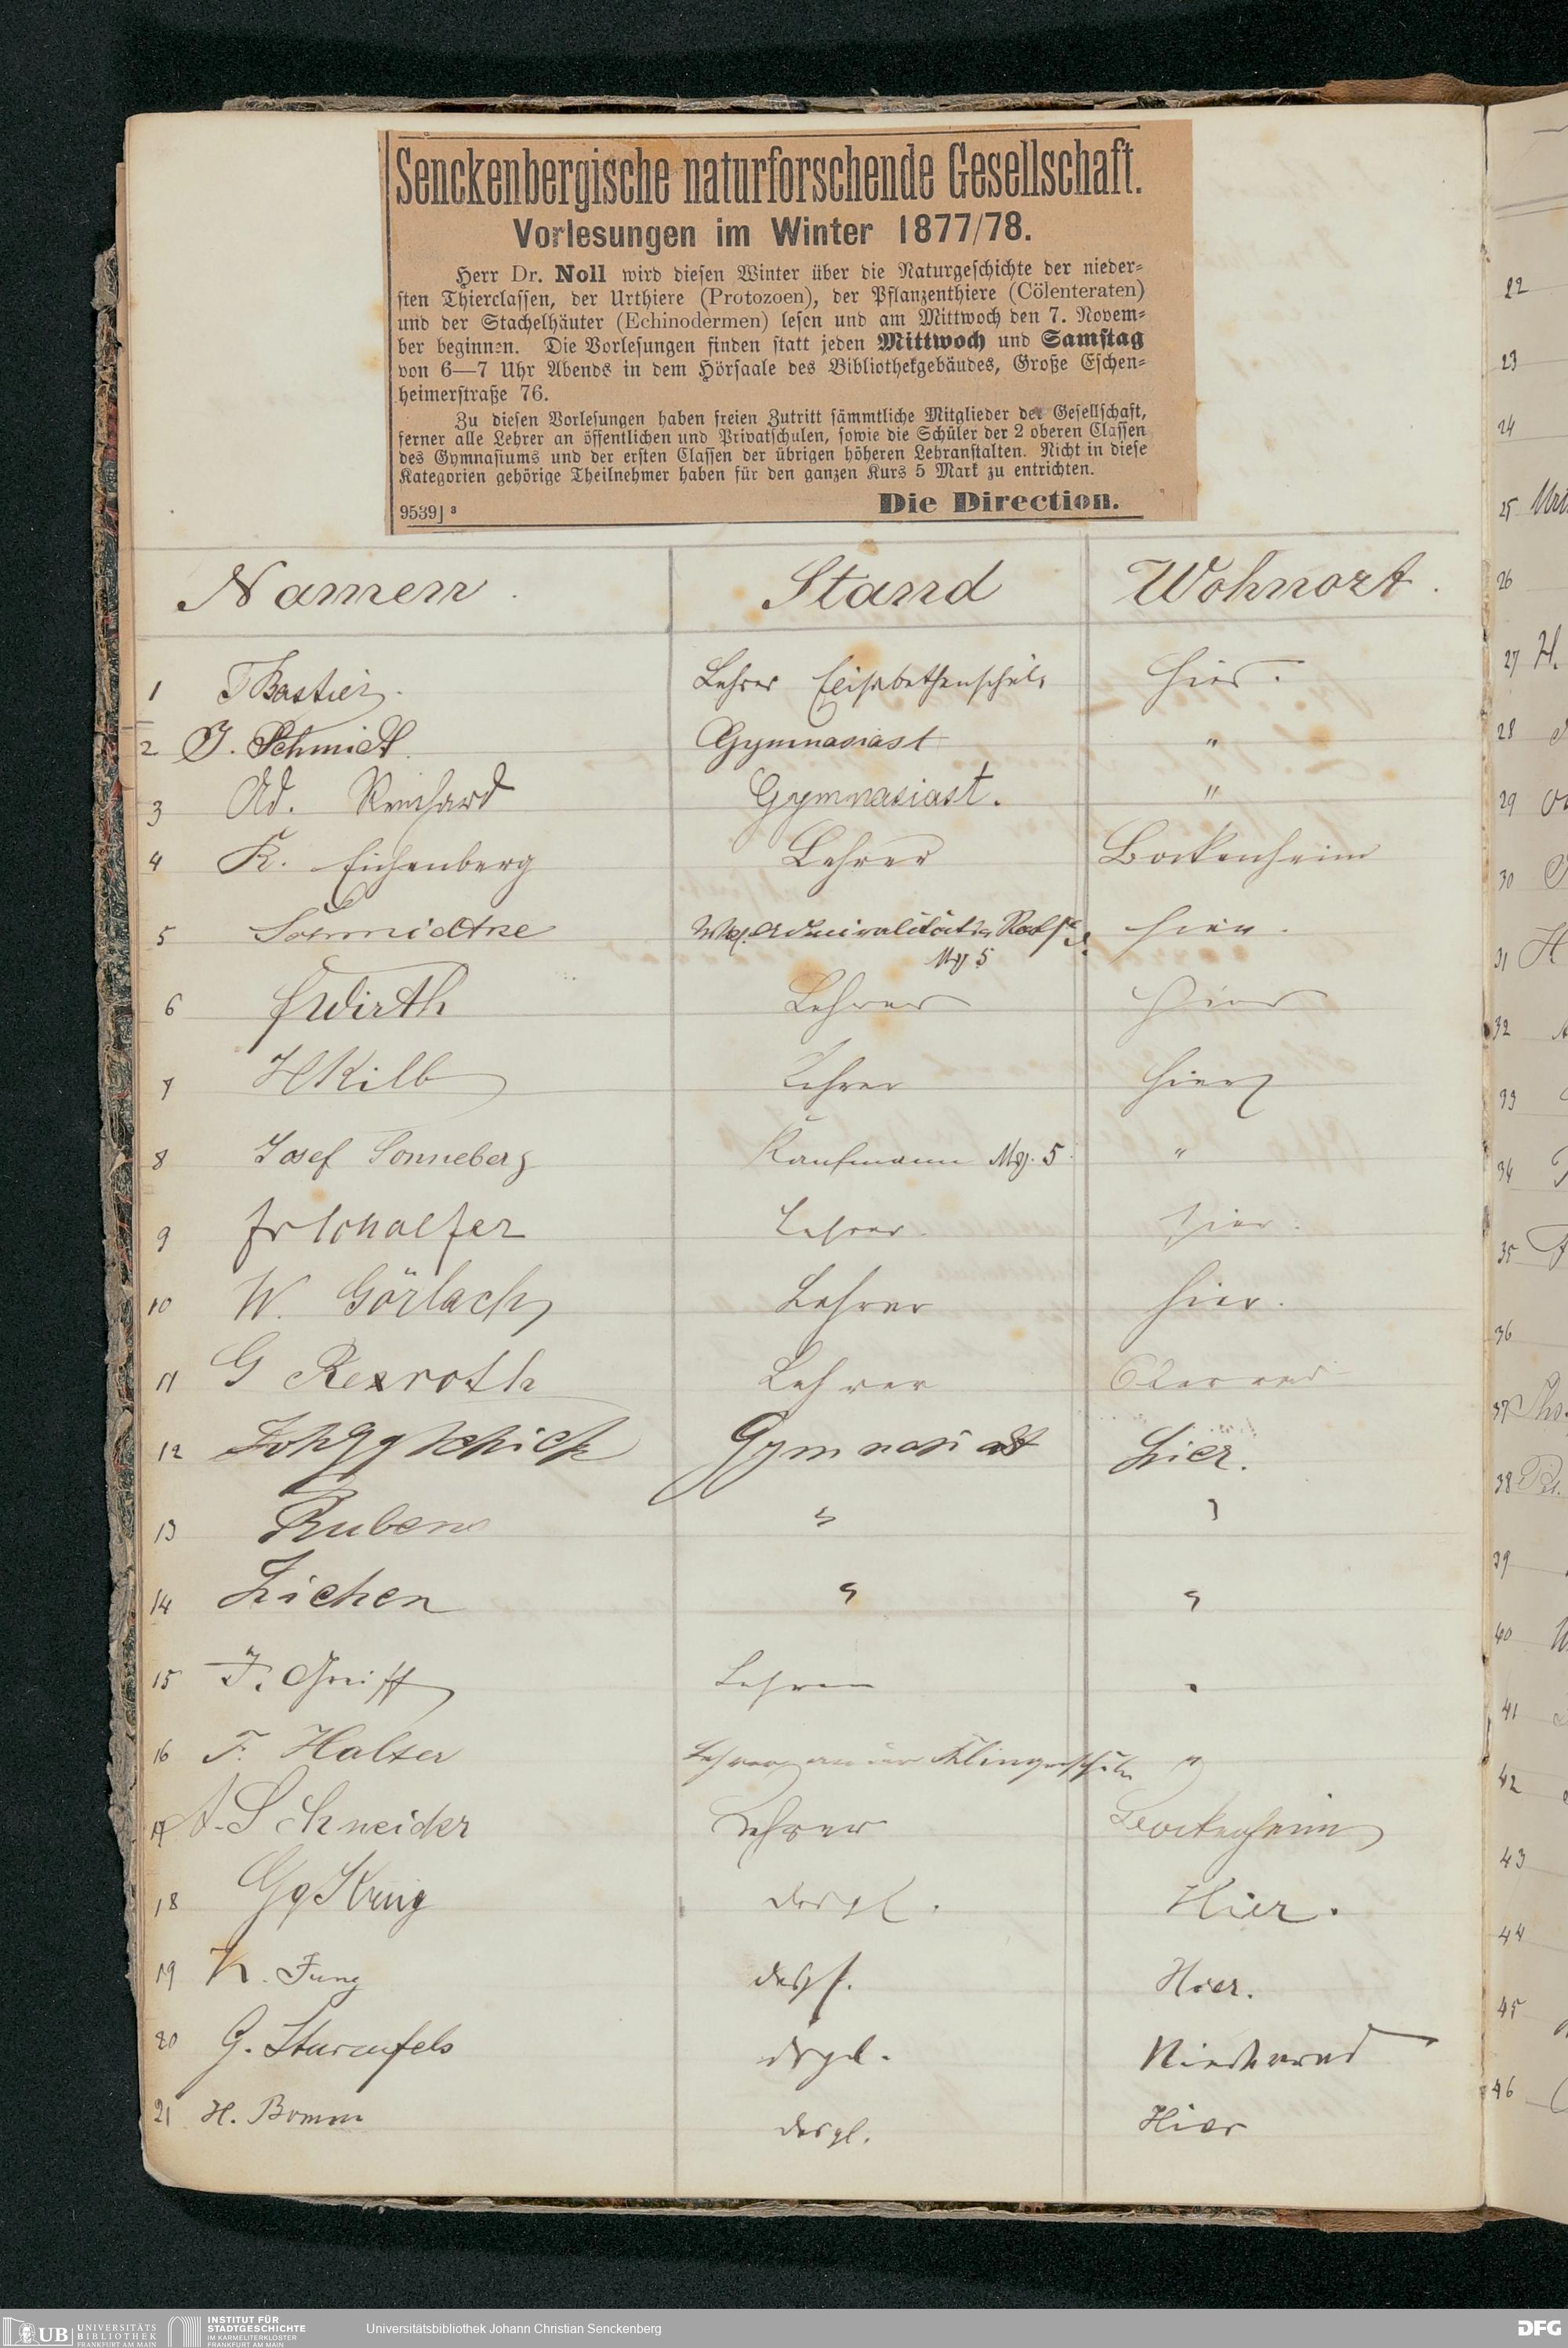 Senckenbergische naturforschende Gesellschaft.
Vorlesungen im Winter 1877/78.
Herr Dr. Noll wird diesen Winter über die Naturgeschichte der nieder-
sten Thierclassen, der Urthiere (Protozoen), der Pflanzenthiere (Cölenteraten)
und der Stachelhäuter (Echinodermen) lesen und am Mittwoch den 7. Novem-
ber beginnen. Die Vorlesungen finden statt jeden Mittwoch und Samstag
von 6—7 Uhr Abends in dem Hörsaale des Bibliothekgebäudes, Große Eschen-
heimerstraße 76.
Zu diesen Vorlesungen haben freien Zutritt sämmtliche Mitglieder der Gesellschaft,
ferner alle Lehrer an öffentlichen und Privatschulen, sowie die Schüler der 2 oberen Classen
des Gymnasiums und der ersten Classen der übrigen höheren Lehranstalten. Nicht in diese
Kategorien gehörige Theilnehmer haben für den ganzen Kurs 5 Mark zu entrichten.
9539] 3 Die Direction.
Namen Stand Wohnort.
1 Bastier. Lehrer Elisabethenschule hier.
2 J. Schmidt. Gymnasiast "
3 Ad. Reichard Gymnasiast. "
4 K. Eichenberg Lehrer Bockenheim
5 hier.
Mg 5
6 Wirth Lehrer hier
7 H Kilb Lehrer hier
8 Josef Sonneberg Kaufmann Mg. 5. "
9 Fr Schaefer Lehrer. hier.
10 W. Görlach Lehrer hier.
11 G Rexroth Lehrer Oberrad
12 Schick Gymnasiast hier.
13 Ruben " "
14 Ziehen " "
15 J. Greiff Lehrer "
16 F. Halser Lehrer an der Klingerschule "
17 A. Schneider Lehrer Bockenheim
18 Gg Krug desgl. Hier.
19 K. Jung desgl. Hier.
20 G. Sturmfels dsgl. Niederrad
21 H. Bomm desgl. Hier
22
23
24
25
26
27 H.
28
29
30
31 H
32
33
34
35
36
37
38
39
40
41
42
43
44
45
46
UB UNIVERSITÄTS
BIBLIOTHEK
FRANKFURT AM MAIN
INSTITUT FÜR
STADTGESCHICHTE
IM KARMELITERKLOSTER
FRANKFURT AM MAIN
Universitätsbibliothek Johann Christian Senckenberg
DFG